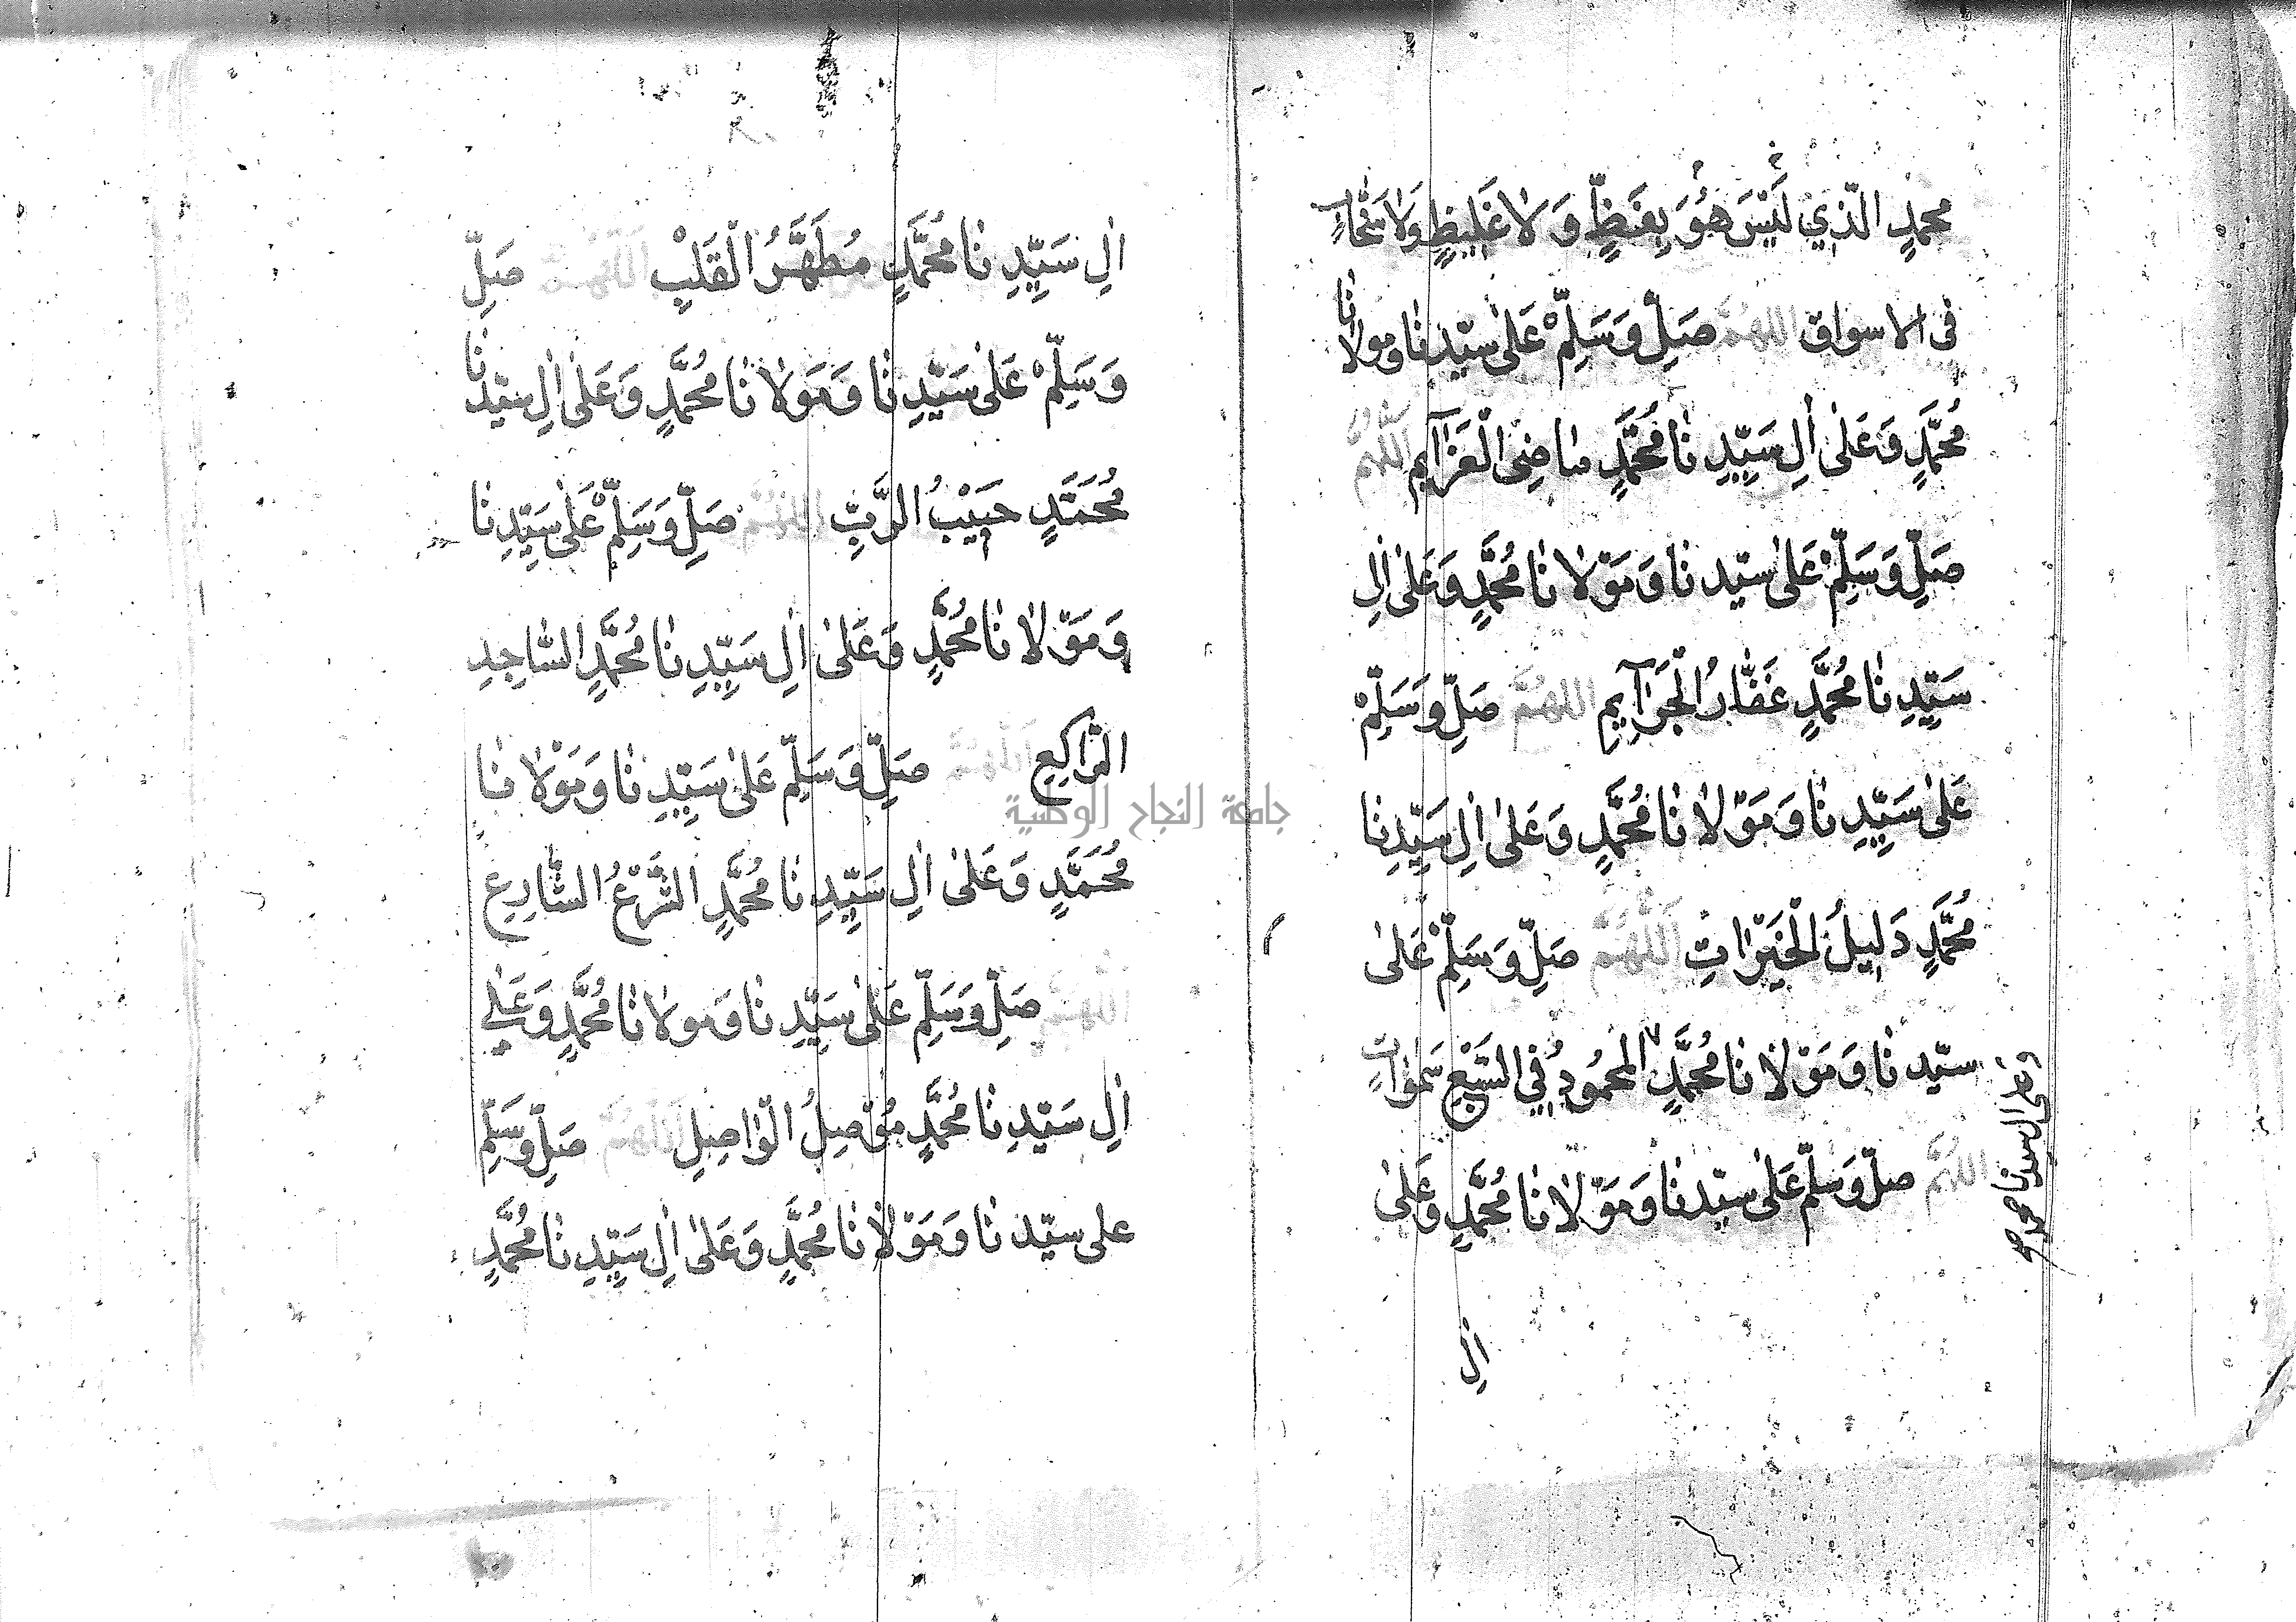 محمدٍ الّذي لَيْسَ هُوَ بِفَظٍّ وَلاٰ غَلِيظٍ وَلاٰ سَخَّابٍ
فى الاسواق اللهُمَّ صَلِّ وَسَلِّمْ عَلىٰ سيّدنٰا ومولاٰنٰا
مُحَمَّدٍ وَعَلىٰ اٰلِ سَيِّدِنٰا مُحَمَّدٍ ماضِى الْعَزٰآيِمِ اللّٰهُمَّ
صَلِّ وَسَلِّمْ عَلىٰ سيّدنٰا وَمَوْلاٰنٰا مُحَمَّدٍ وَعَلىٰ اٰلِ
سَيِّدِنٰا مُحَمَّدٍ غَفّٰارُ الْجَرٰآيِمِ اللهُمَّ صَلِّ وَسَلِّمْ
عَلىٰ سَيِّدِنٰا وَمَوْلاٰنٰا مُحَمَّدٍ وَعَلىٰ اٰلِ سَيِّدِنٰا
مُحَمَّدٍ دَلِيلُ الْخَيْرٰاتِ اَللّهُمَّ صَلِّ وَسَلِّمْ عَلىٰ
سيّدنٰا وَمَوْلاٰنٰا مُحَمَّدٍ الْمَحمُودِ فِي السَّبْعِ سَمٰوٰاتٍ
وعلى ال سيدنا محمد صح
اللهُمَّ صلّ وَسلّم عَلىٰ سيّدنٰا وَمَوْلاٰنٰا مُحَمَّدٍ وَعَلىٰ
اٰلِ
اٰلِ سَيِّدِنٰا مُحَمَّدٍ مُطَهَّرُ الْقَلْبِ اَللّٰهُمَّ صَلِّ
وَسَلِّمْ عَلىٰ سَيِّدِنٰا وَمَوْلاٰنٰا مُحَمَّدٍ وَعَلىٰ اٰلِ سيّدنٰا
مُحَمَّدٍ حَبِيْبُ الرَّبِّ اللهُمَّ صَلِّ وَسَلِّمْ عَلىٰ سَيِّدِنٰا
وَمَوْلاٰنٰا مُحَمَّدٍ وَعَلىٰ اٰلِ سَيِّدِنٰا مُحَمَّدٍ السّٰاجِدِ
الرّٰاكِعِ اَللّهُمَّ صَلِّ وَسَلِّمْ عَلىٰ سَيِّدِنٰا وَمَوْلاٰنٰا
جامعة النجاح الوطنية
مُحَمَّدٍ وَعَلىٰ اٰلِ سَيِّدِنٰا مُحَمَّدٍ الشَّرْعُ الشّٰارِعِ
اللهُمَّ صَلِّ وَسَلِّمْ عَلىٰ سَيِّدِنٰا وَمولاٰنٰا مُحَمَّدٍ وَعَلي
اٰلِ سَيّدِنٰا مُحَمَّدٍ مُوَصِلُ الْوٰاصِلِ اَللّهُمَّ صَلِّ وَسَلِّمْ
على سيّدنٰا وَمَوْلاٰنٰا مُحَمَّدٍ وَعَلىٰ اٰلِ سَيِّدِنٰا مُحَمَّدٍ